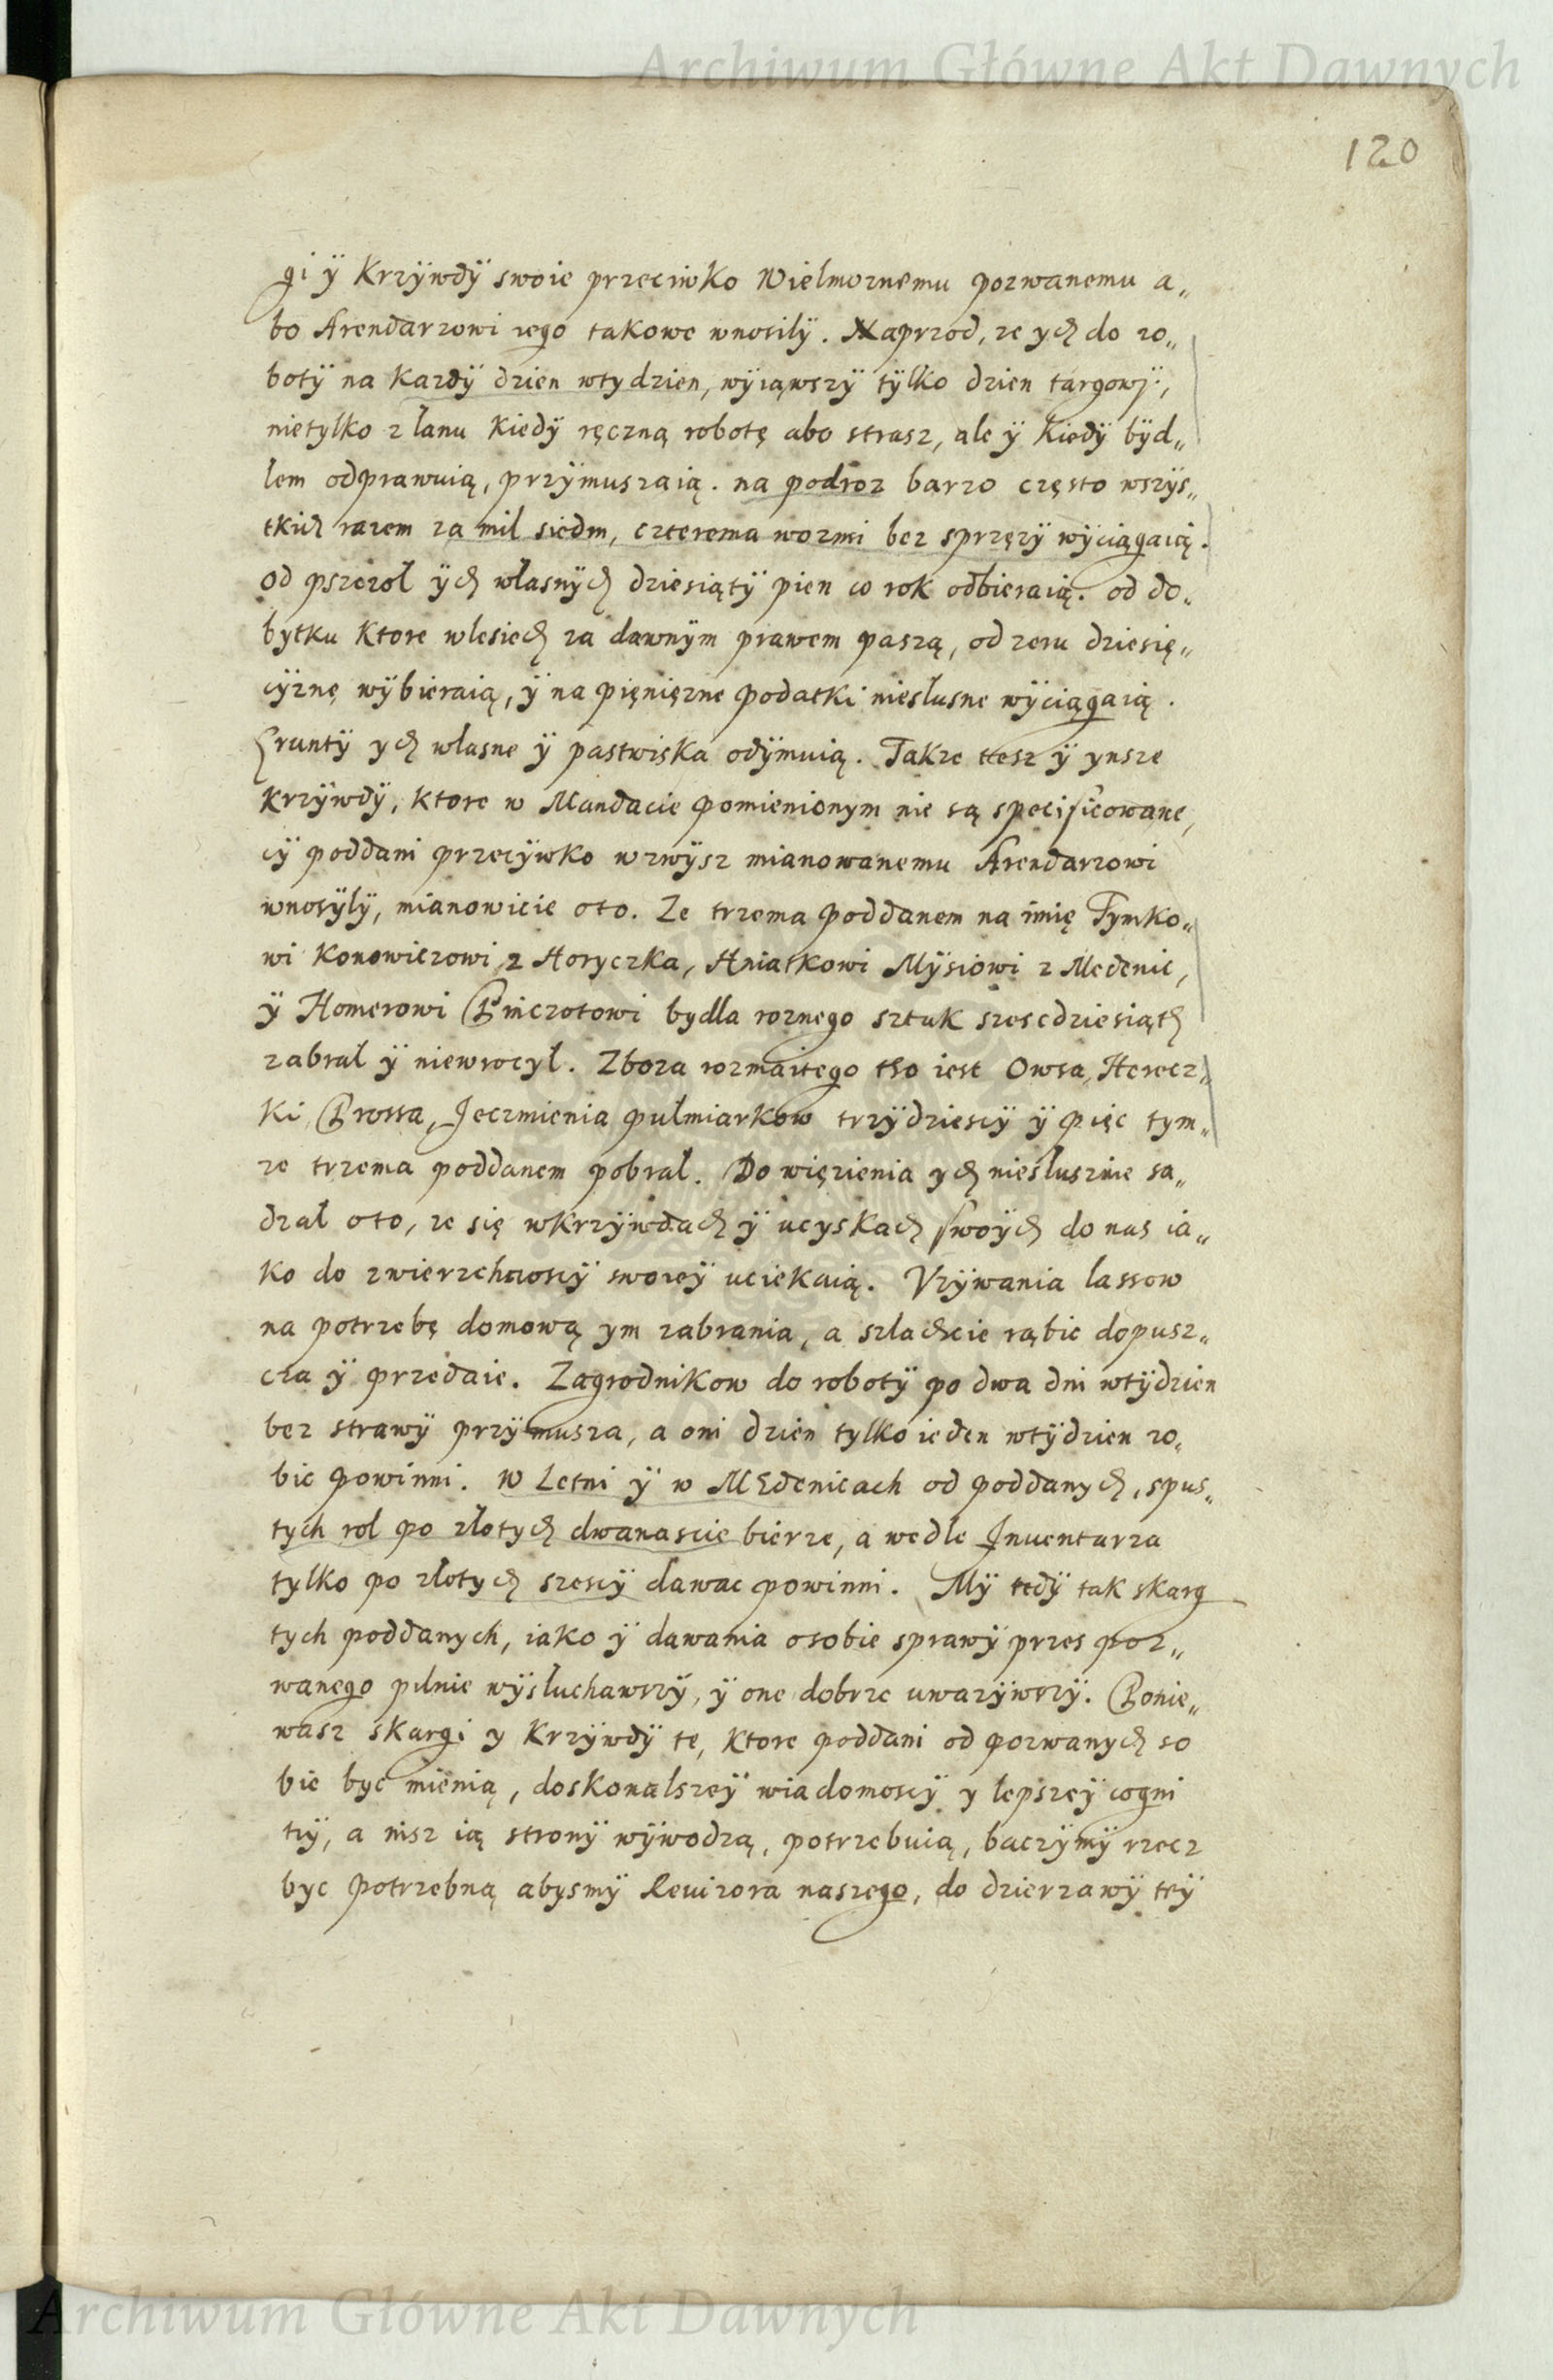 Archiwum Główne Akt Dawnych
120
gi ÿ Krzÿwdÿ swoie przeciwko Wielmoznemu pozwanemu a„
bo Arendarzowi iego takowe wnosilÿ. Naprzod, ze ych do ro„
botÿ na kazdÿ dzien wtydzien, wÿiąwszÿ tÿlko dzien targowÿ,
nietylko z łanu kiedÿ ręczną robotę abo strasz, ale ÿ kiedÿ bÿd„
łem odprawuią, przÿmuszaią. na podroz barzo często wszÿs„
tkich razem za mil siedm, czterema wozmi bez sprzęzÿ wÿciągaią.
od pszczoł ÿch własnÿch dziesiątÿ pien co rok odbieraią. od do„
bytku ktore wlesiech za dawnÿm prawem paszą, od zeru dziesię„
cÿznę wÿbieraią, ÿ na pięnięzne podatki niesłusne wÿciągaią.
Gruntÿ ych własne ÿ pastwiska odÿmuią. Takze tesz ÿ ynsze
krzÿwdÿ, ktore w Mandacie pomienionym nie są specificowane,
cÿ poddani przecÿwko wzwÿsz mianowanemu Arendarzowi
wnosÿlÿ, mianowicie oto. Ze trzema poddanem na imię Tymko„
wi Konowiczowi z Horyczka, Hniatkowi Mÿsiowi z Medenic,
ÿ Homerowi Pinczotowi bydła roznego sztuk szescdziesiąth
zabrał ÿ niewrocył. Zboza rozmaitego tho iest Owsa, Hrecz„
ki, Prossa, Jeczmienia pułmiarkow trzÿdziescÿ ÿ pięc tym„
ze trzema poddanem pobrał. Do więzienia ych niesłusznie sa„
dzał oto, ze się wkrzÿwdach ÿ ucyskach swoÿch do nas ia„
ko do zwierzchnoscÿ swoieÿ uciekaią. Vzÿwania lassow
na potrzebę domową ym zabrania, a szlachcie rąbic dopusz„
cza ÿ przedaie. Zagrodnikow do robotÿ po dwa dni wtÿdzien
bez strawÿ przÿmusza, a oni dzien tylko ieden wtÿdzien ro„
bic powinni. w Letni ÿ w Medenicach od poddanych, spus„
tych rol po złotych dwanascie bierze, a wedle Inuentarza
tylko po złotych szescÿ dawac powinni. Mÿ tedÿ tak skarg
tych poddanych, iako ÿ dawania osobie sprawÿ przes poz„
wanego pilnie wÿsłuchawszÿ, ÿ one dobrze uwazÿwszÿ. Ponie„
wasz skargi y Krzÿwdÿ te, ktore poddani od pozwanych so
bie byc mienią, doskonalszeÿ wiadomoscÿ y lepszeÿ cogni
tiÿ, a nisz ią stronÿ wÿwodzą, potrzebuią, baczÿmÿ rzecz
byc potrzebną abysmÿ Reuizora naszego, do dzierzawÿ teÿ
Archiwum Główne Akt Dawnych